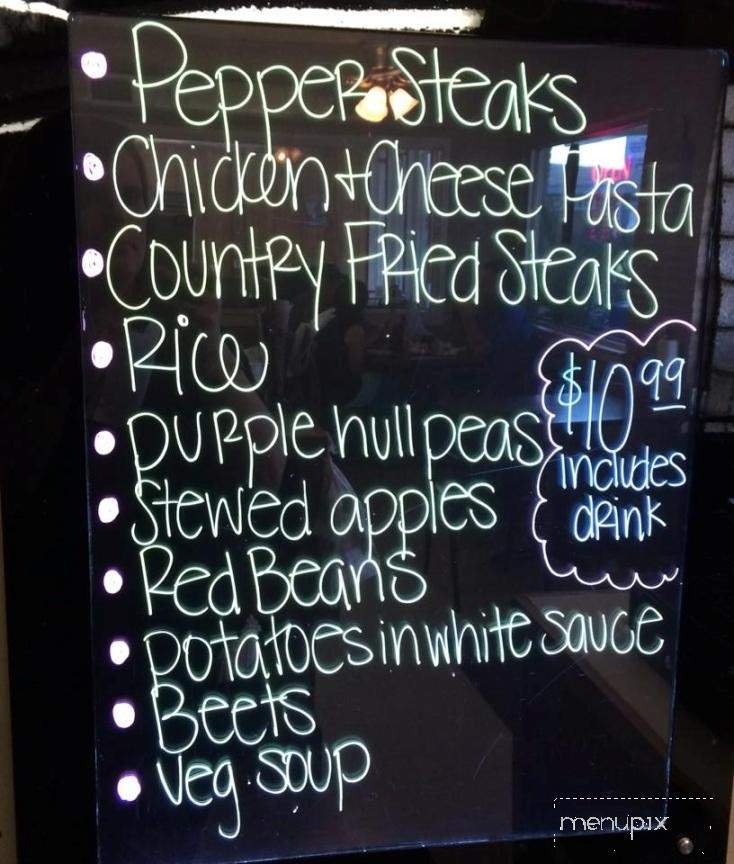 Pepper Steaks
Chicken + Cheese Pasta
Country Fried Steaks
Rice
purple hull peas
$10.99
includes
drink
Stewed apples
Red Beans
potatoes in white sauce
Beets
veg. soup
menupix